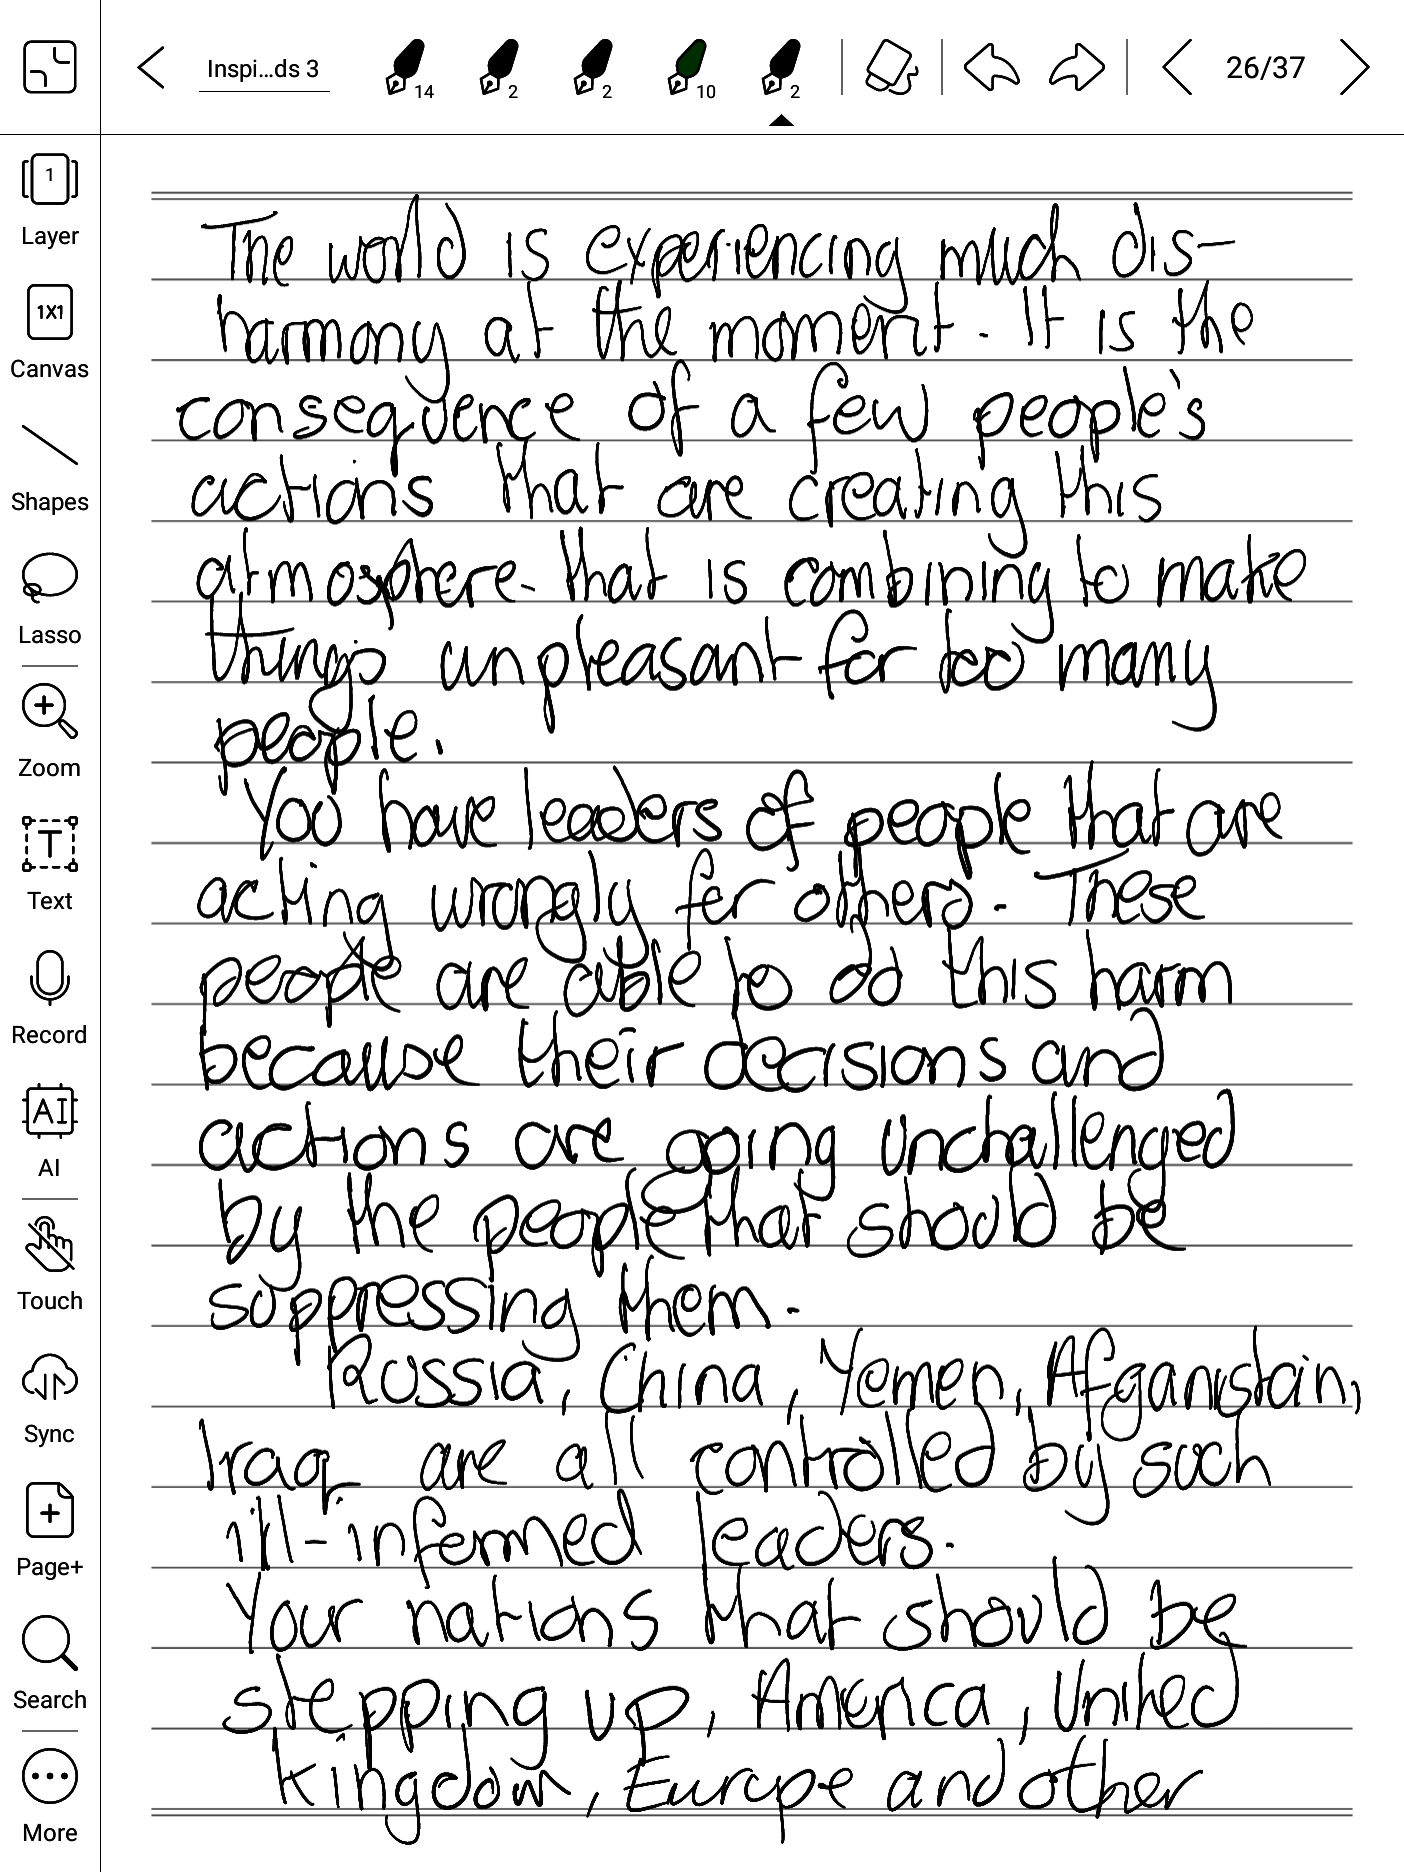 Inspi...ds 3
14
2
2
10
2
26/37
1
Layer
1X1
Canvas
Shapes
Lasso
Zoom
T
Text
Record
AI
AI
Touch
Sync
Page+
Search
More
The world is experiencing much dis-
harmony at the moment. It is the
consequence of a few people's
actions that are creating this
atmosphere- that is combining to make
things unpleasant for too many
people.
You have leaders of people that are
acting wrongly for others. These
people are able to do this harm
because their decisions and
actions are going unchallenged
by the people that should be
suppressing them.
Russia, China, Yemen, Afganistain,
Iraq are all controlled by such
ill-informed leaders.
Your nations that should be
stepping up, America, United
Kingdom, Europe and other